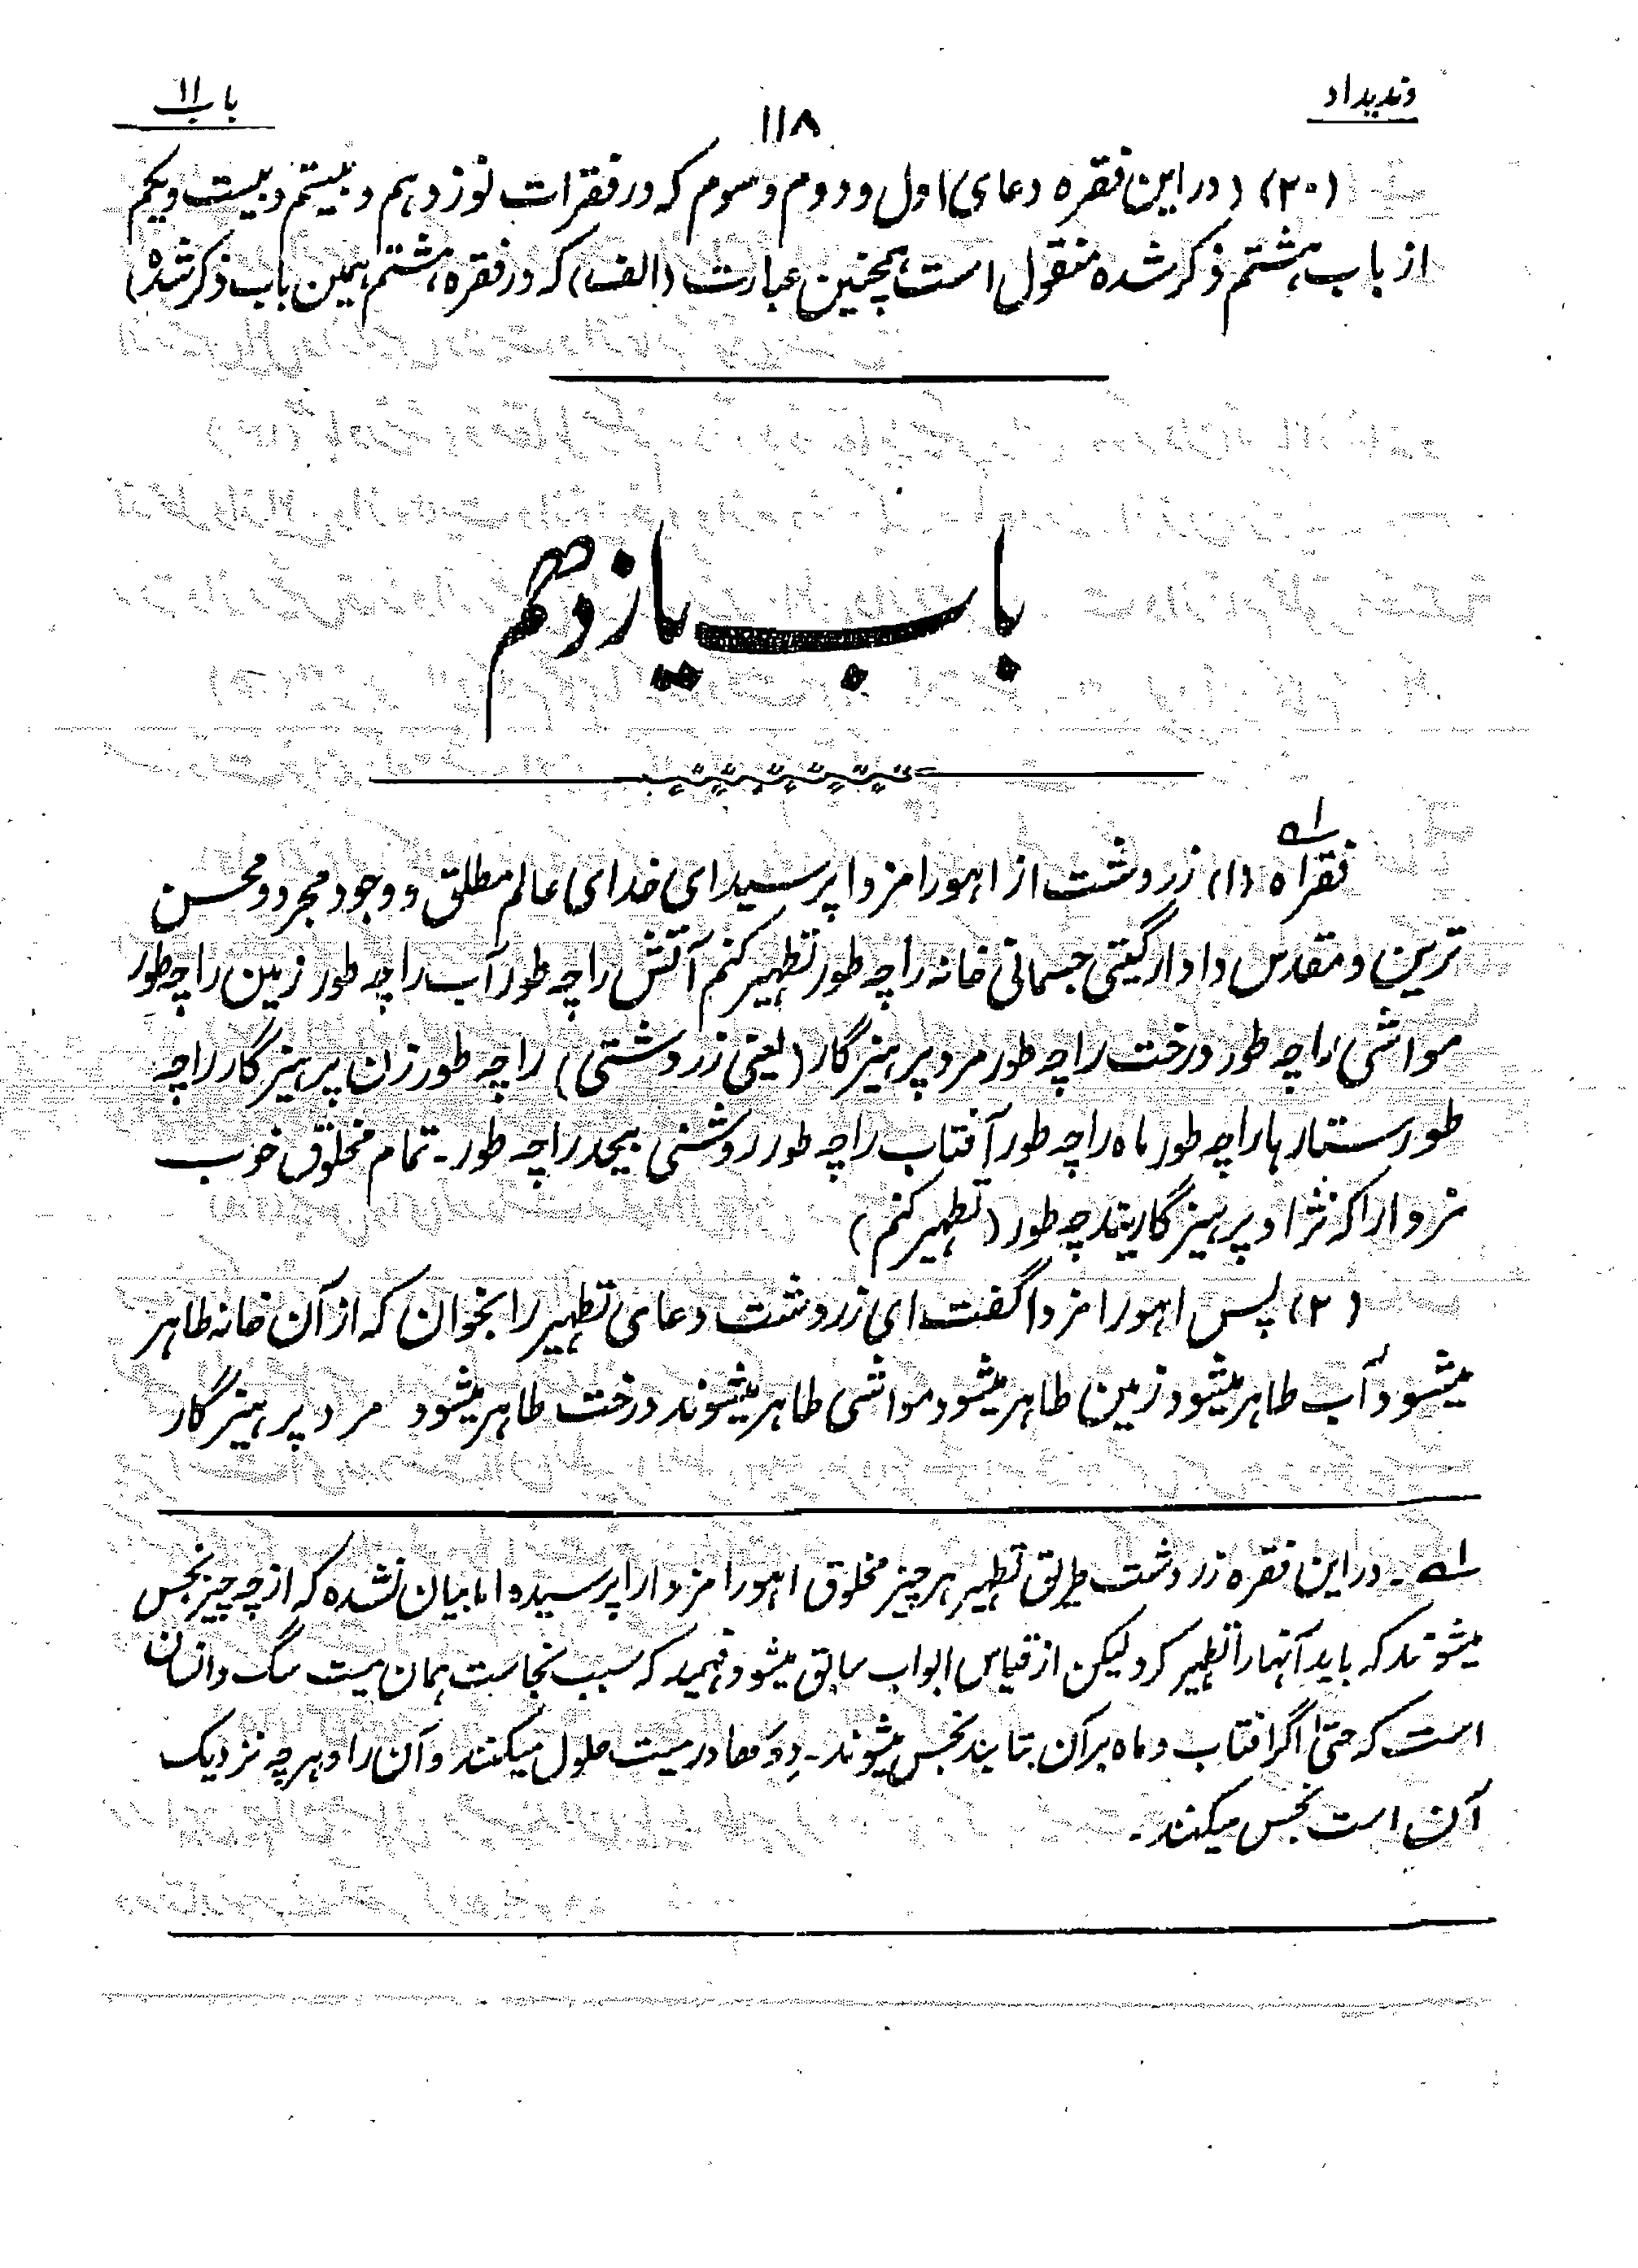 وندیداد
۱۱۸
باب ۱۱
(۲۰) (در این فقره دعای اول و دوم و سوم که در فقرات نوزدهم و بیستم و بیست و یکم
از باب هشتم ذکر شده منقول است همچنین عبارت (الف) که در فقره هشتم همین باب ذکر شده)
باب یازدهم
فقره (۱) زردشت از اهورامزدا پرسید ای خدای عالم مطلق و وجود مجرد و محسن
ترین و مقدس دادار گیتی جسمانی خانه را چه طور تطهیر کنم آتش را چه طور آب را چه طور زمین را چه طور
مواشی را چه طور درخت را چه طور مرد پرهیزگار (یعنی زردوشتی) را چه طور زن پرهیزگار را چه
طور ستارها را چه طور ماه را چه طور آفتاب را چه طور روشنی بیحد را چه طور - تمام مخلوق خوب
مزدا را که نژاد پرهیزگاریند چه طور (تطهیر کنم)
(۲) پس اهورامزدا گفت ای زردوشت دعای تطهیر را بخوان که از آن خانه طاهر
میشود آب طاهر میشود زمین طاهر میشود مواشی طاهر میشوند درخت طاهر میشود مرد پرهیزگار
۱ - در این فقره زردوشت طریق تطهیر هر چیز مخلوق اهورامزدا را پرسیده اما بیان نشده که از چه چیز نجس
میشوند که باید آنها را تطهیر کرد لیکن از قیاس ابواب سابق میشود فهمید که سبب نجاست همان میت سگ و انسان
است که حتی اگر افتاب و ماه بر آن بتابند نجس میشوند - دِوَها در میت حلول میکنند و آن را و هر چه نزدیک
آن است نجس میکنند -